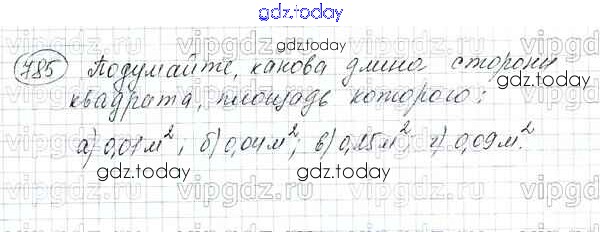 gdz.today
785 Подумайте, какова длина стороны
квадрата, площадь которого:
а) 0,01 м²; б) 0,04 м²; в) 0,25 м²; г) 0,09 м².
gdz.today
gdz.today
gdz.today
gdz.today
gdz.today
gdz.today
vipgdz.ru
vipgdz.ru
vipgdz.ru
vipgdz.ru